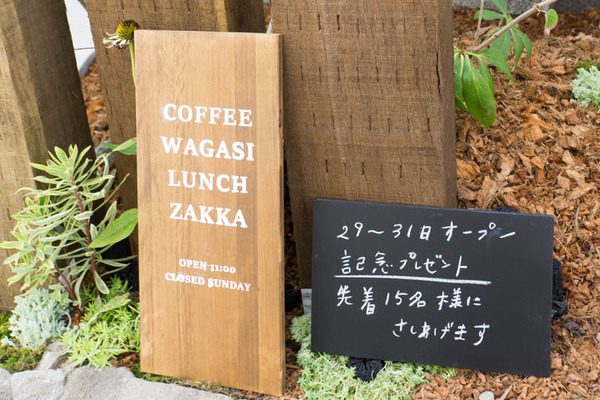 COFFEE
WAGASI
LUNCH
ZAKKA
OPEN 11:00
CLOSED SUNDAY
29〜31日オープン
記念プレゼント
先着15名様に
さしあげます